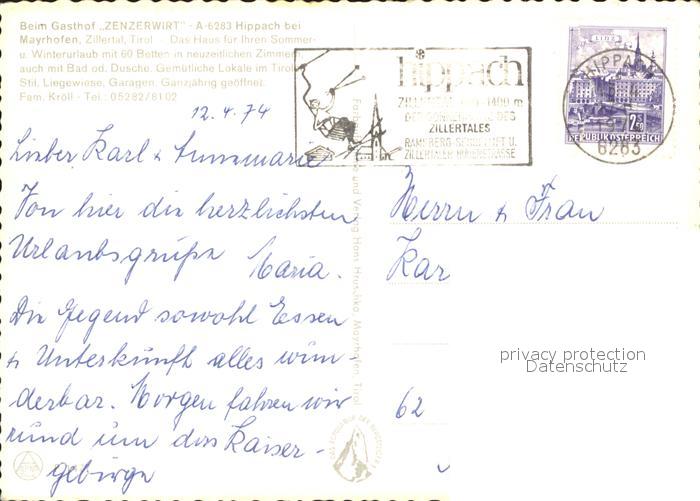 Beim Gasthof „ZENZERWIRT" - A-6283 Hippach bei
Mayrhofen, Zillertal, Tirol - Das Haus für Ihren Sommer-
u. Winterurlaub mit 60 Betten in neuzeitlichen Zimmer
auch mit Bad od. Dusche. Gemütliche Lokale im Tirol
Stil, Liegewiese, Garagen. Ganzjährig geöffnet.
Fam. Kröll - Tel.: 05282/8102
12.4.74
Lieber Karl & Annemarie
Von hier die herzlichsten
Urlaubsgrüße
Maria.
Die Gegend sowohl Essen
& Unterkunft alles wun-
derbar. Morgen fahren wir
rund um das Kaiser-
gebirge
und Verlag Hans Hruschka, Mayrhofen, Tirol
hippach
ZILLERTAL 600-1400 m
DES
ZILLERTALES
RAMSBERG-SESSELLIFT U.
ZILLERTALER HÖHENSTRASSE
LINZ
2.50
REPUBLIK ÖSTERREICH
HIPPACH
6283
Herrn & Frau
Kar
62
privacy protection
Datenschutz